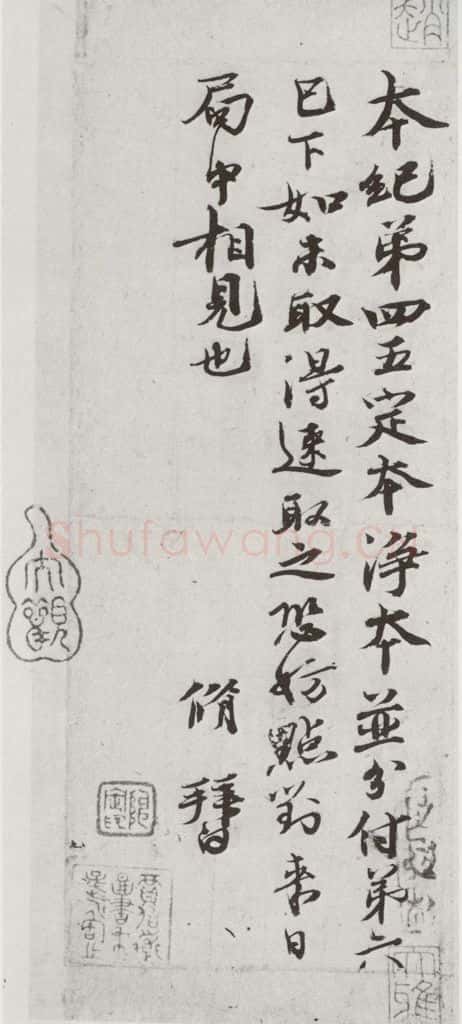 本紀第四五定本淨本並分付第六
已下如未取得速取之恐妨點對来日
局中相見也
脩 拜白
Shufawang.cn